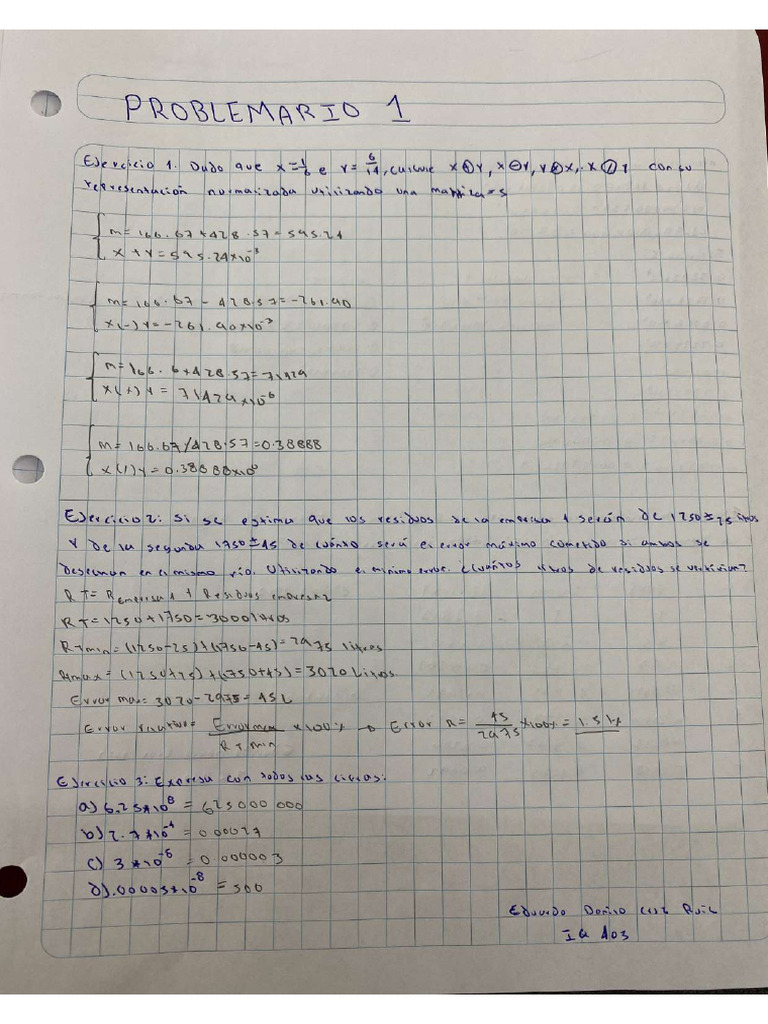 PROBLEMARIO 1
Ejercicio 1. Dado que x=1/6 e Y=6/14, calcule x⊕Y, x⊖Y, Y⊗x, x⊘Y con su
representación normalizada utilizando una mantiza=5
m=166.67+428.57=595.24
x+Y=595.24*10^-3
m=166.67-428.57=-261.90
x(-)Y=-261.90*10^-3
m=166.6*428.57=71429
x(*)Y=71429*10^-6
m=166.67/428.57=0.38888
x(/)Y=0.38888*10^0
Ejercicio 2: Si se estima que los residuos de la empresa 1 serán de 1250±25 litros
Y de la segunda 1750±45 de cuánto será el error máximo cometido si ambos se
desechan en el mismo río. Utilizando el mínimo error. ¿Cuántos litros de residuos se vertirían?
RT=Rempresa 1 + Residuos empresa 2
RT=1250+1750=3000 litros
RTmin=(1250-25)+(1750-45)=2975 litros
RTmax=(1250+25)+(1750+45)=3020 Litros
Error max=3020-2975=45L
Error relativo=Error max/RTmin x100% → Error R=45/2975 x100%=1.51%
Ejercicio 3: Expresa con todos las cifras:
a) 6.25*10^8 = 625000 000
b) 2.7*10^-4 = 0.00027
c) 3*10^-6 = 0.000003
d) .00005*10^-8 = 500
Eduardo Ruiz
IQ 403